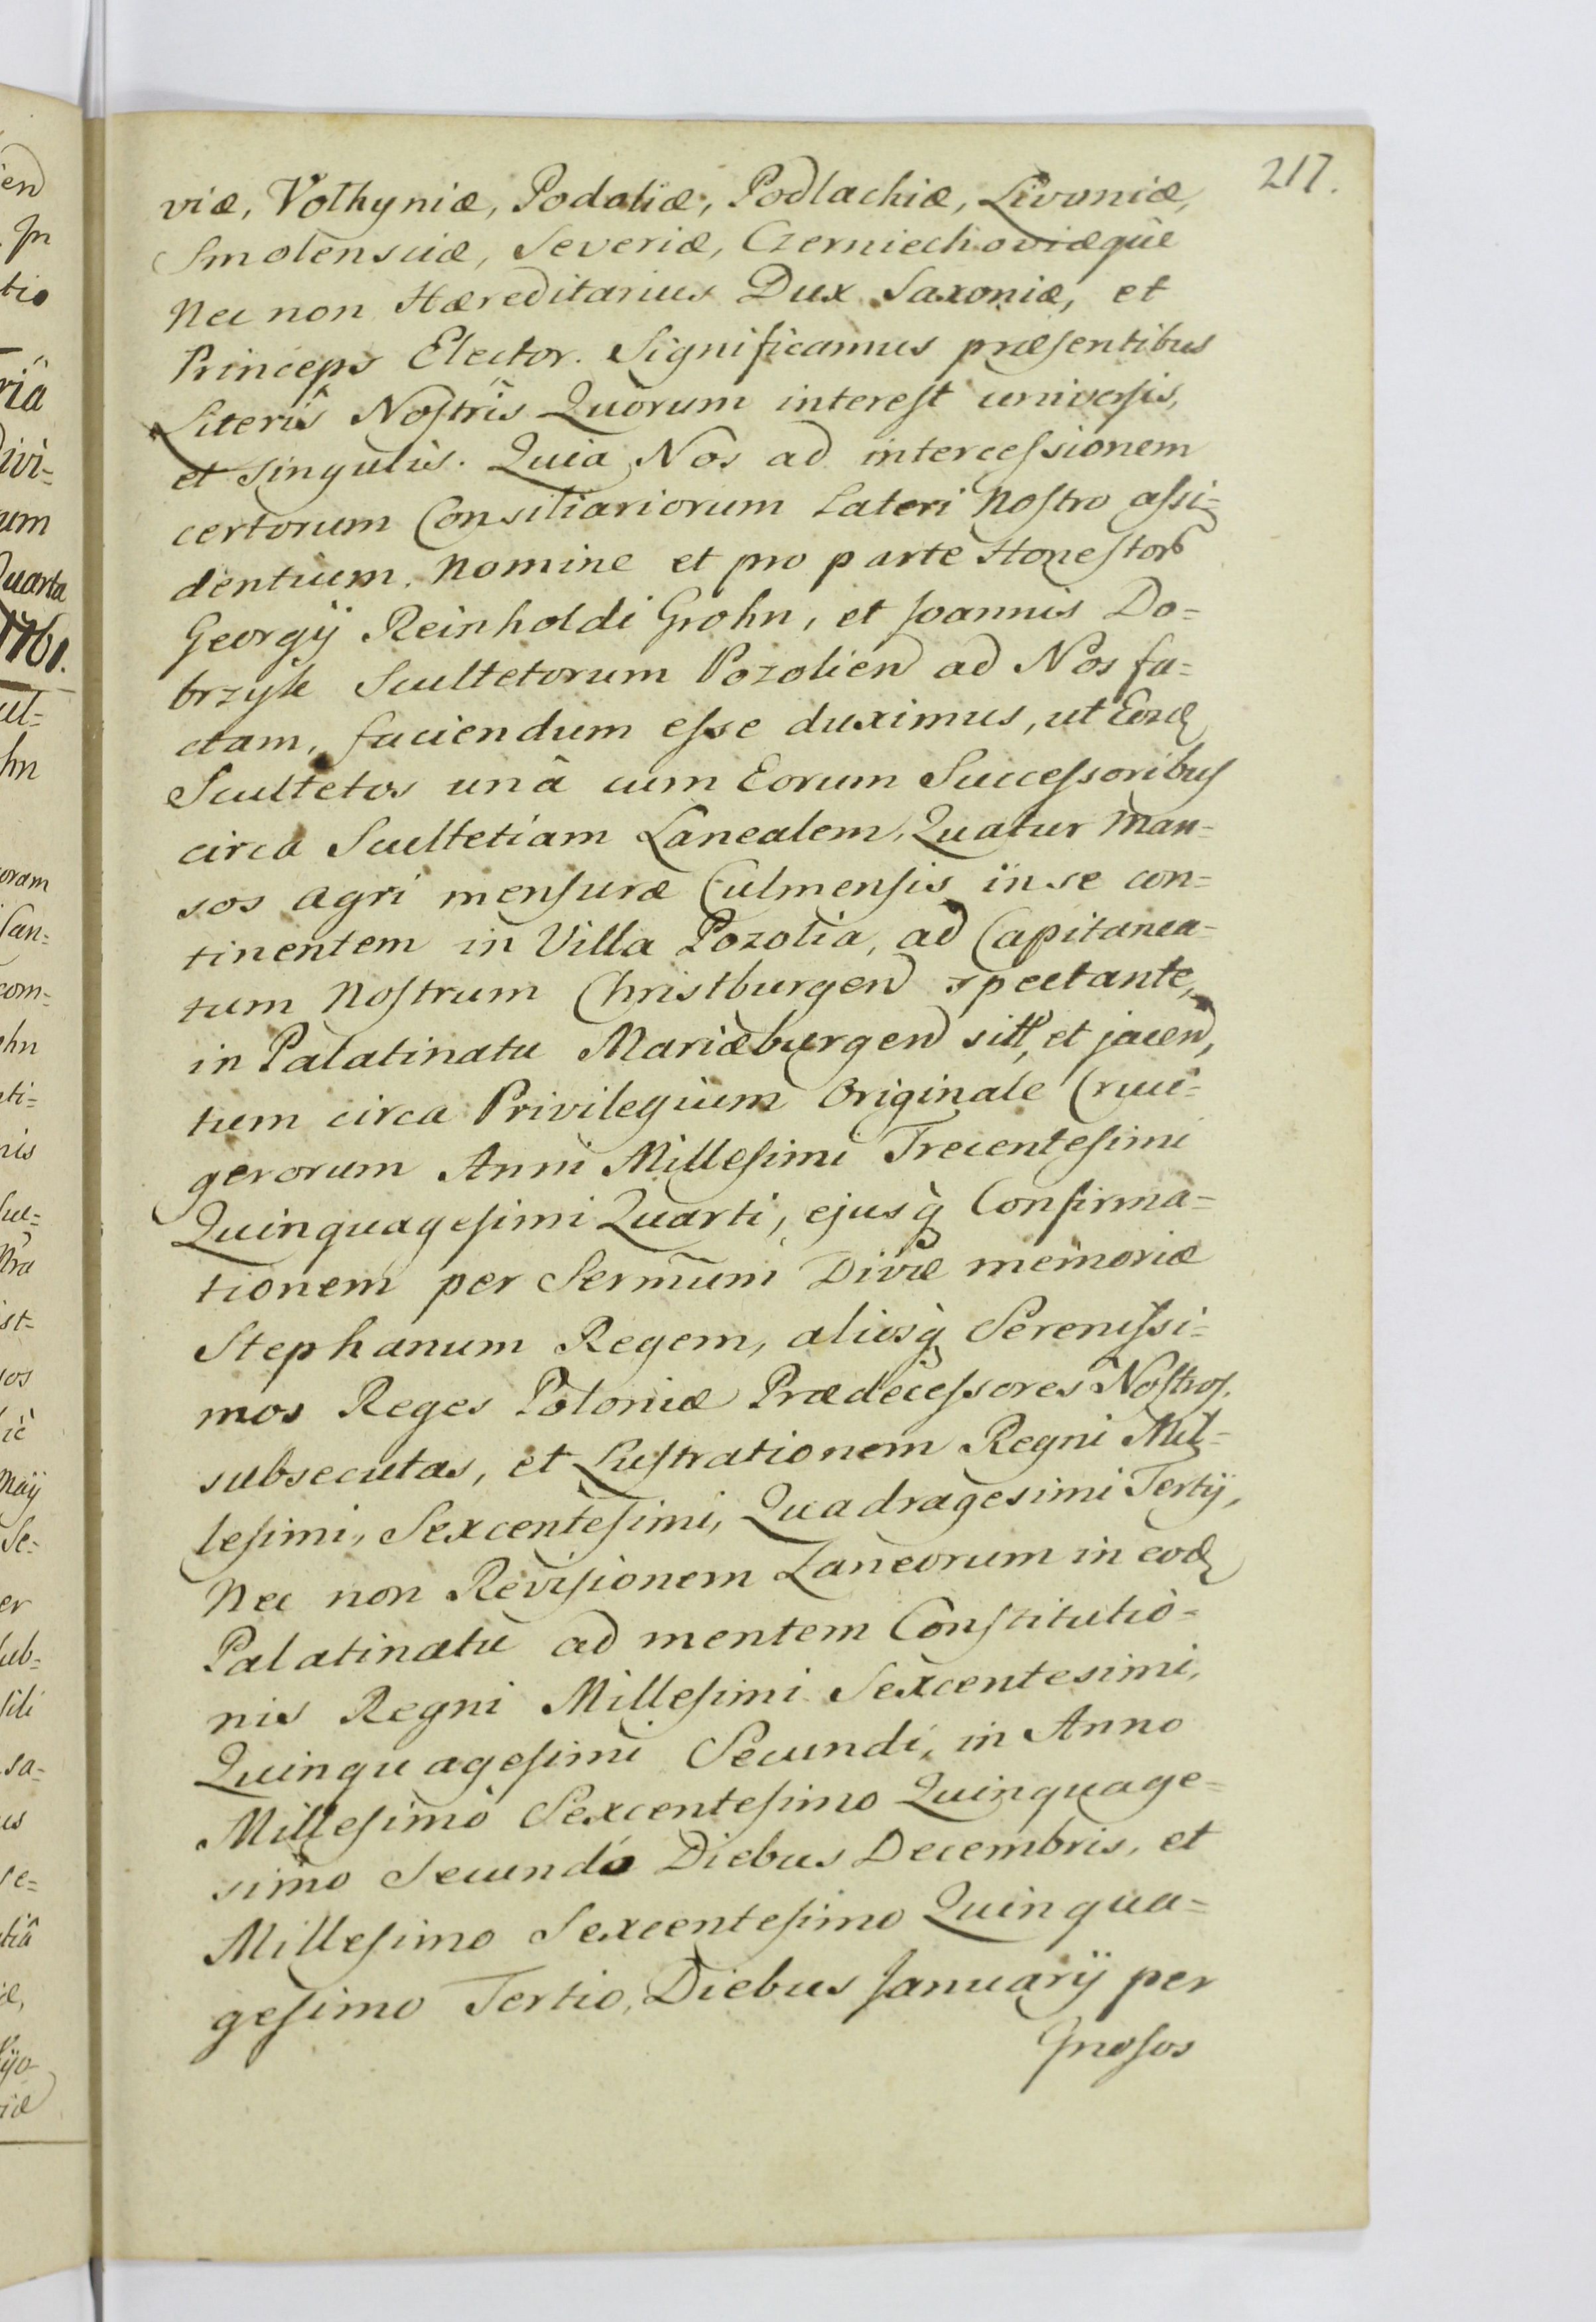 217.
viæ, Volhyniæ, Podoliæ, Podlachiæ, Livoniæ,
Smolensciæ, Severiæ, Czerniechoviæque
Nec non Hæreditarius Dux Saxoniæ, et
Princeps Elector. Significamus præsentibus
Literis Nostris Quorum interest universis,
et singulis. Quia Nos ad intercessionem
certorum Consiliariorum Lateri Nostro assi=
dentium, nomine et pro parte Honestor
Georgij Reinholdi Grohn, et Joannis Do=
brzyk Scultetorum Pozolien ad Nos fa=
ctam, faciendum esse duximus, ut Eosd
Scultetos unâ cum Eorum Successoribus
circa Scultetiam Lanealem, Quatur Man=
sos agri mensuræ Culmensis in se con=
tinentem in Villa Pozolia, ad Capitanea=
tum Nostrum Christburgen spectante,
in Palatinatu Mariæburgen sitt, et jacen,
tum circa Privilegium Originale Cruci=
gerorum Anni Millesimi Trecentesimi
Quinquagesimi Quarti, ejusq̀ Confirma=
tionem per Sermum Divæ memoriæ
Stephanum Regem, aliosq̀ Serenissi=
mos Reges Poloniæ Prædecessores Nostros,
subsecutas, et Lustrationem Regni Mil=
lesimi, Sexcentesimi, Quadragesimi Tertij,
Nec non Revisionem Laneorum in eod
Palatinatu ad mentem Constitutio=
nis Regni Millesimi Sexcentesimi,
Quinquagesimi Secundi, in Anno
Millesimo Sexcentesimo Quinquage=
simo Secundo Diebus Decembris, et
Millesimo Sexcentesimo Quinqua=
gesimo Tertio, Diebus Januarij per
Gnosos